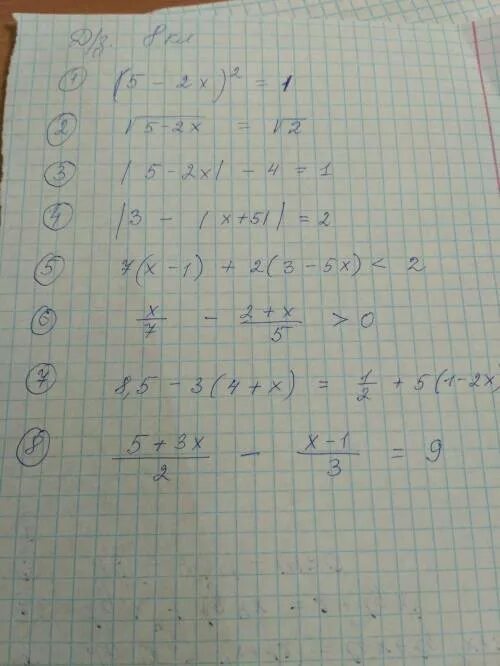 Д/з. 8 кл
① (5 - 2x)² = 1
② √5-2x = √2
③ |5-2x| - 4 = 1
④ |3 - |x+5|| = 2
⑤ 7(x-1) + 2(3-5x) < 2
⑥ x/7 - 2+x/5 > 0
⑦ 8,5 - 3(4+x) = 1/2 + 5(1-2x)
⑧ 5+3x/2 - x-1/3 = 9